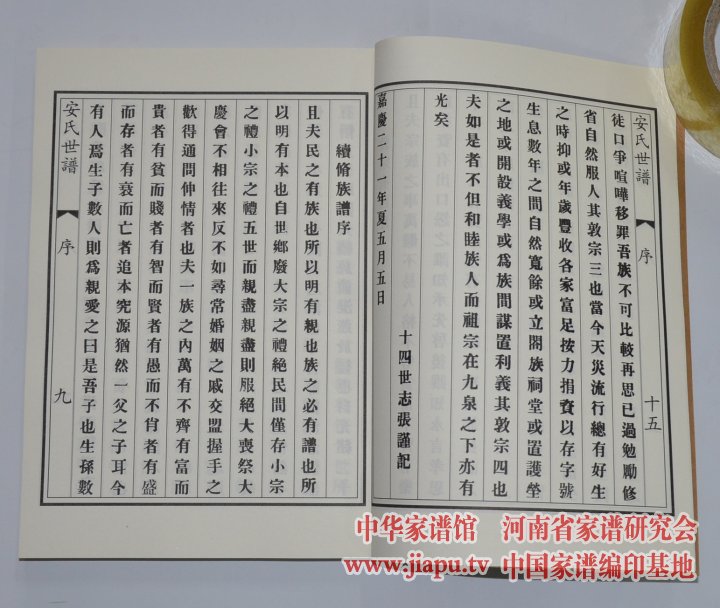 安氏世譜
序
十五
徒口爭喧嘩移罪吾族不可比較再思已過勉勵修
省自然服人其敦宗三也當今天災流行總有好生
之時抑或年歲豐收各家富足按力捐資以存字號
生息數年之間自然寬餘或立閤族祠堂或置護塋
之地或開設義學或為族間謀置利義其敦宗四也
夫如是者不但和睦族人而祖宗在九泉之下亦有
光矣
十四世志張謹記
嘉慶二十一年夏五月五日
續脩族譜序
且夫民之有族也所以明有親也族之必有譜也所
以明有本也自世鄉廢大宗之禮絕民間僅存小宗
之禮小宗之禮五世而親盡親盡則服絕大喪祭大
慶會不相往來反不如尋常婚姻之戚交盟握手之
歡得通問伸情者也夫一族之內萬有不齊有富而
貴者有貧而賤者有智而賢者有愚而不肖者有盛
而存者有衰而亡者追本究源猶然一父之子耳今
有人焉生子數人則為親愛之曰是吾子也生孫數
安氏世譜
序
九
中华家谱馆 河南省家谱研究会
www.jiapu.tv 中国家谱编印基地